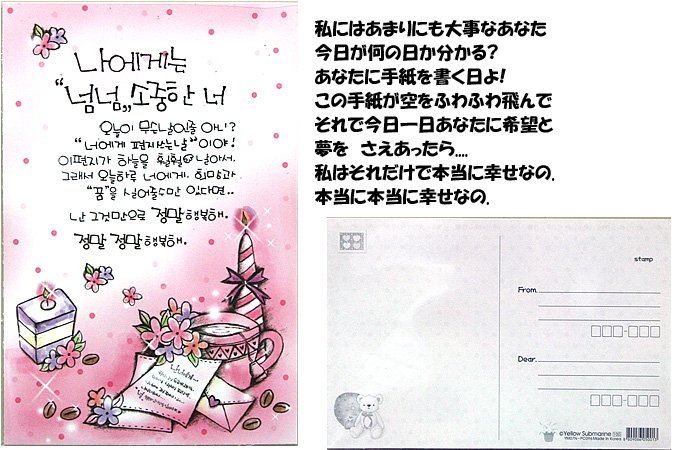 나에게는
“넘넘„ 소중한 너
오늘이 무슨날인줄 아니?
“너에게 편지쓰는날”이야!
이편지가 하늘을 훨훨 날아서.
그래서 오늘하루 너에게. 희망과
“꿈”을 실어줄수만 있다면..
난 그것만으로 정말행복해.
정말 정말 행복해.
私にはあまりにも大事なあなた
今日が何の日か分かる?
あなたに手紙を書く日よ!
この手紙が空をふわふわ飛んで
それで今日一日あなたに希望と
夢を さえあったら....
私はそれだけで本当に幸せなの.
本当に本当に幸せなの.
stamp
From.
Dear.
©Yellow Submarine
Made in Korea